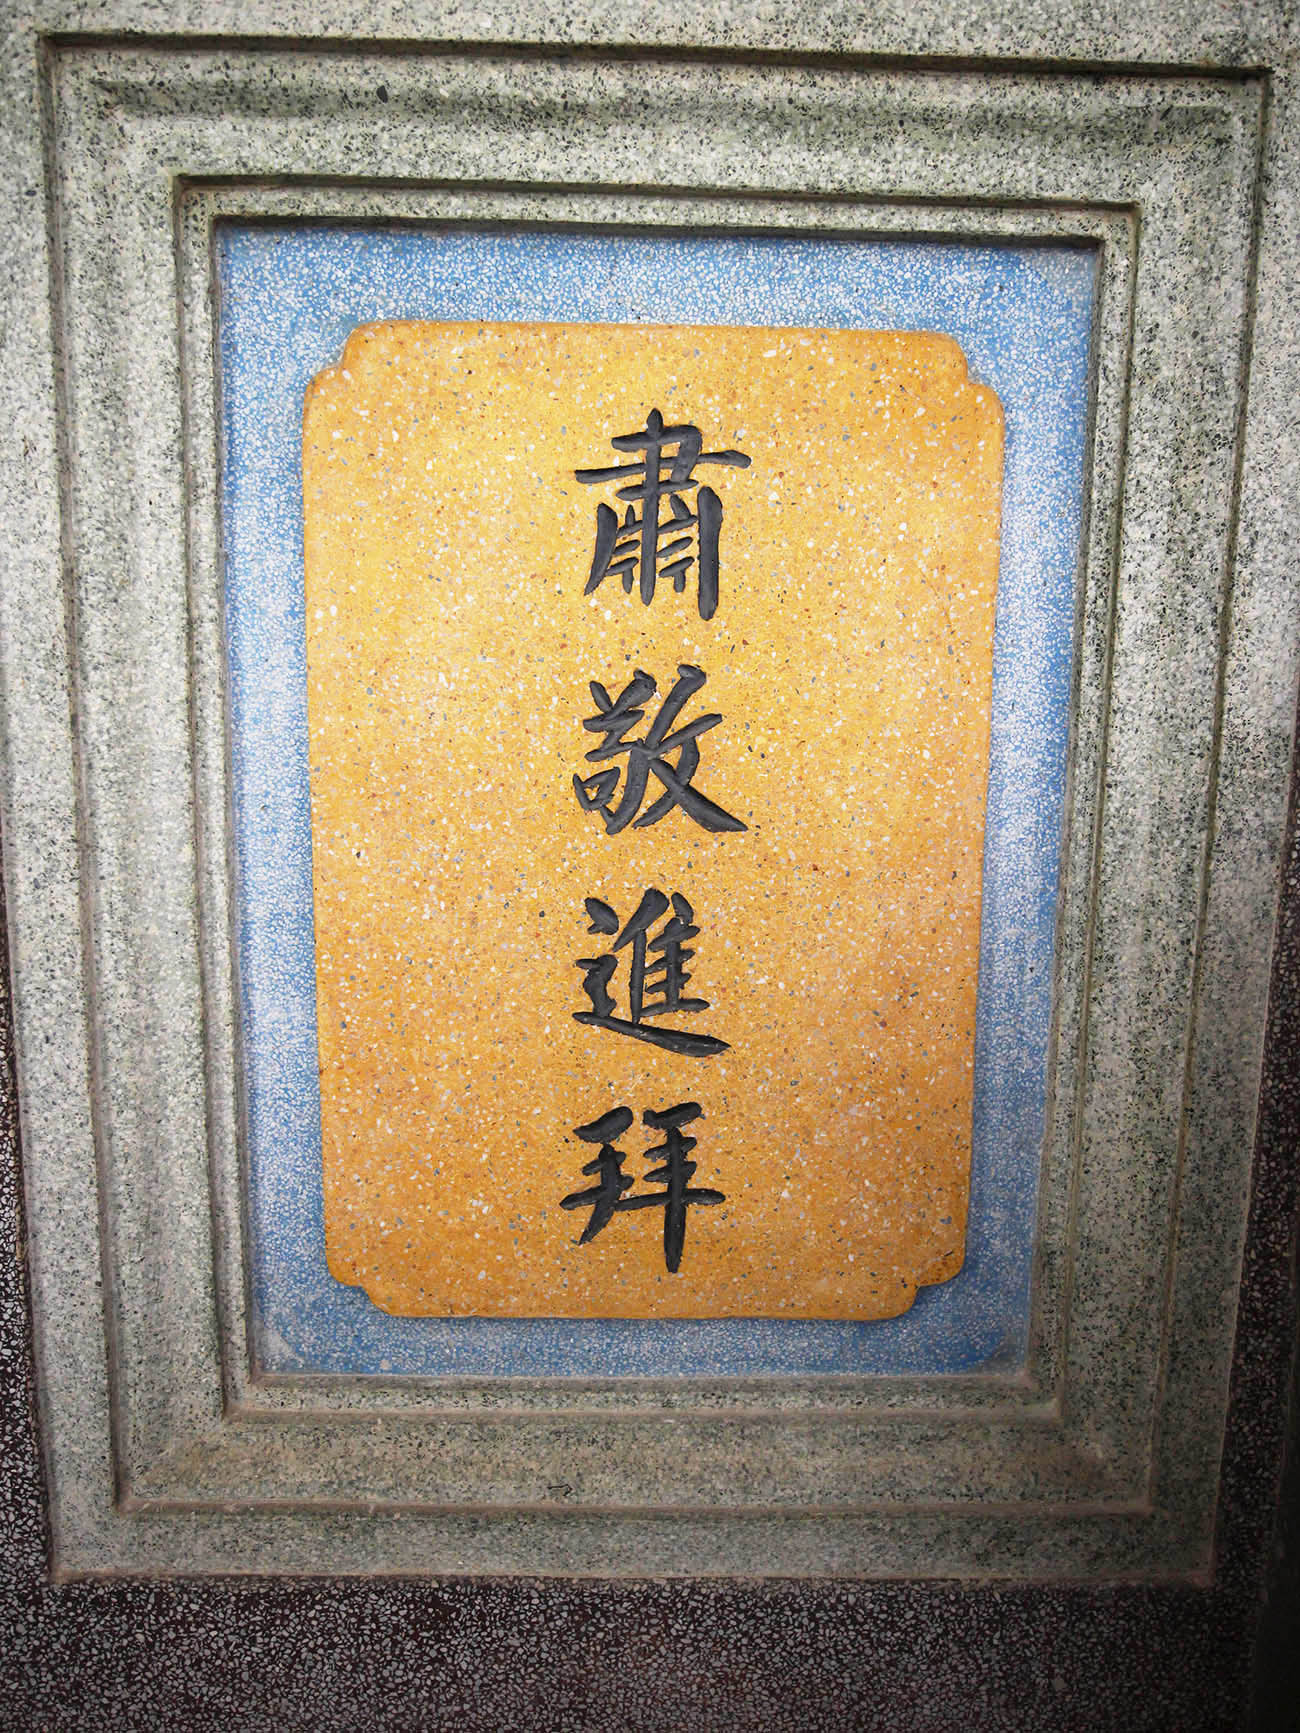 肅敬進拜